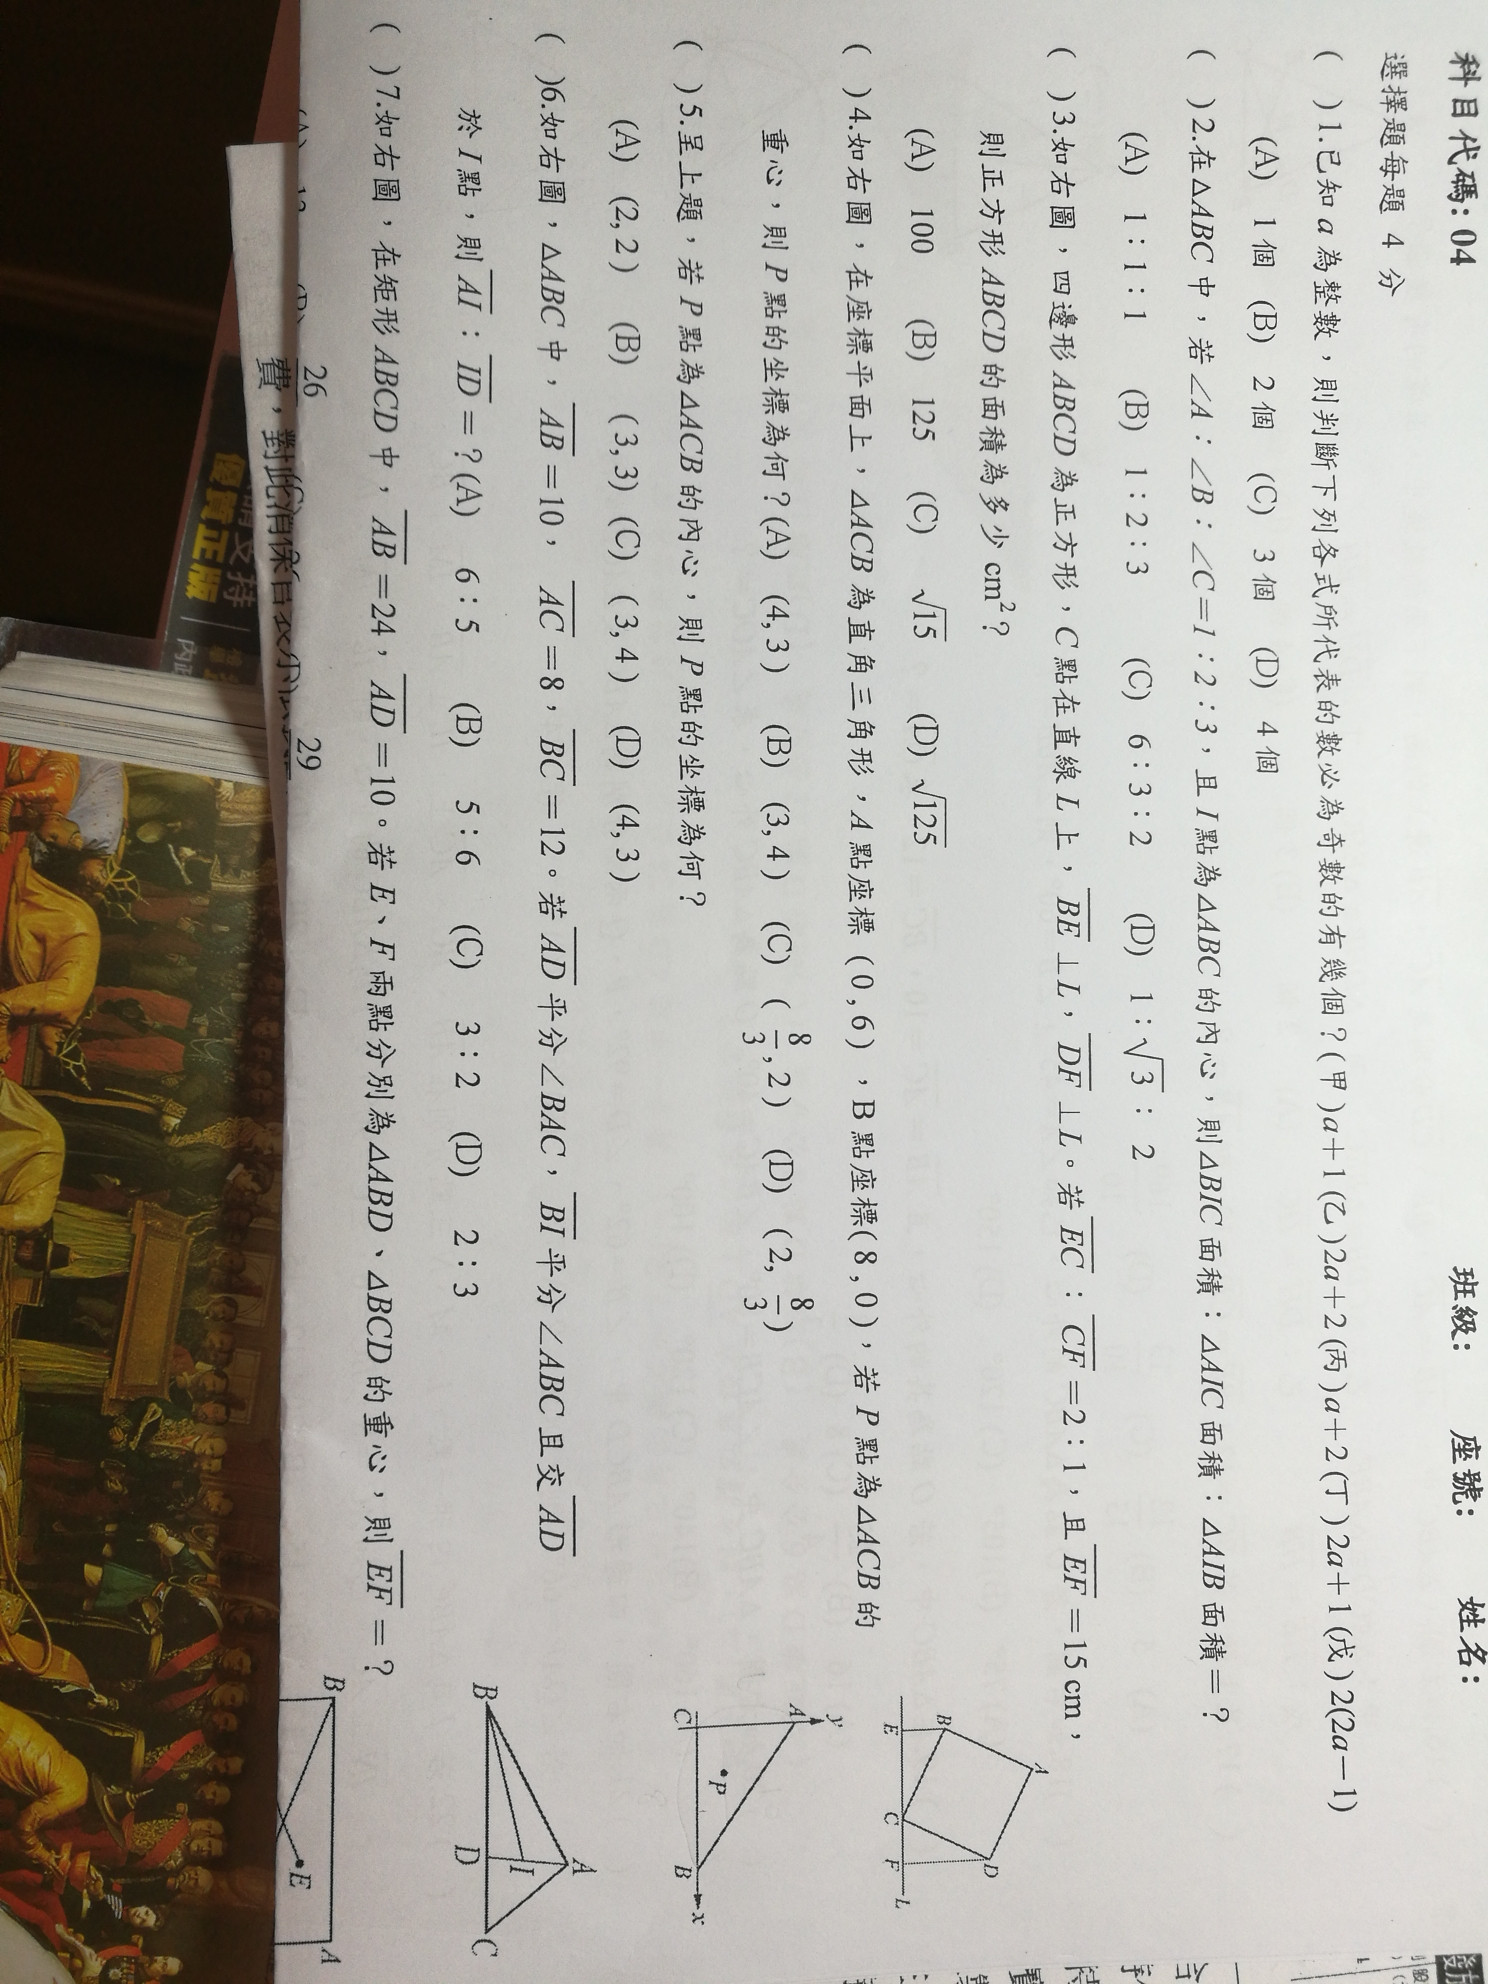 科目代碼：04 班級： 座號： 姓名：
選擇題每題 4 分
( )1.已知 a 為整數，則判斷下列各式所代表的數必為奇數的有幾個？(甲)a＋1(乙)2a＋2(丙)a＋2(丁)2a＋1(戊)2(2a－1)
(A) 1個 (B) 2個 (C) 3個 (D) 4個
( )2.在△ABC中，若∠A：∠B：∠C＝1：2：3，且I點為△ABC的內心，則△BIC面積：△AIC面積：△AIB面積＝？
(A) 1：1：1 (B) 1：2：3 (C) 6：3：2 (D) 1：√3：2
( )3.如右圖，四邊形ABCD為正方形，C點在直線L上，BE⊥L，DF⊥L。若EC：CF＝2：1，且EF＝15 cm，
則正方形ABCD的面積為多少cm²？
(A) 100 (B) 125 (C) √15 (D) √125
( )4.如右圖，在座標平面上，△ACB為直角三角形，A點座標(0,6)，B點座標(8,0)，若P點為△ACB的
重心，則P點的坐標為何？(A) (4,3) (B) (3,4) (C) (8/3,2) (D) (2,8/3)
( )5.呈上題，若P點為△ACB的內心，則P點的坐標為何？
(A) (2,2) (B) (3,3) (C) (3,4) (D) (4,3)
( )6.如右圖，△ABC中，AB＝10，AC＝8，BC＝12。若AD平分∠BAC，BI平分∠ABC且交AD
於I點，則AI：ID＝？(A) 6：5 (B) 5：6 (C) 3：2 (D) 2：3
( )7.如右圖，在矩形ABCD中，AB＝24，AD＝10。若E、F兩點分別為△ABD、△BCD的重心，則EF＝？
A
B
D
E
C
F
L
y
A
P
C
B
x
A
I
B
D
C
B
A
E
26
29
費，對此消保官表示
支持
優質正版